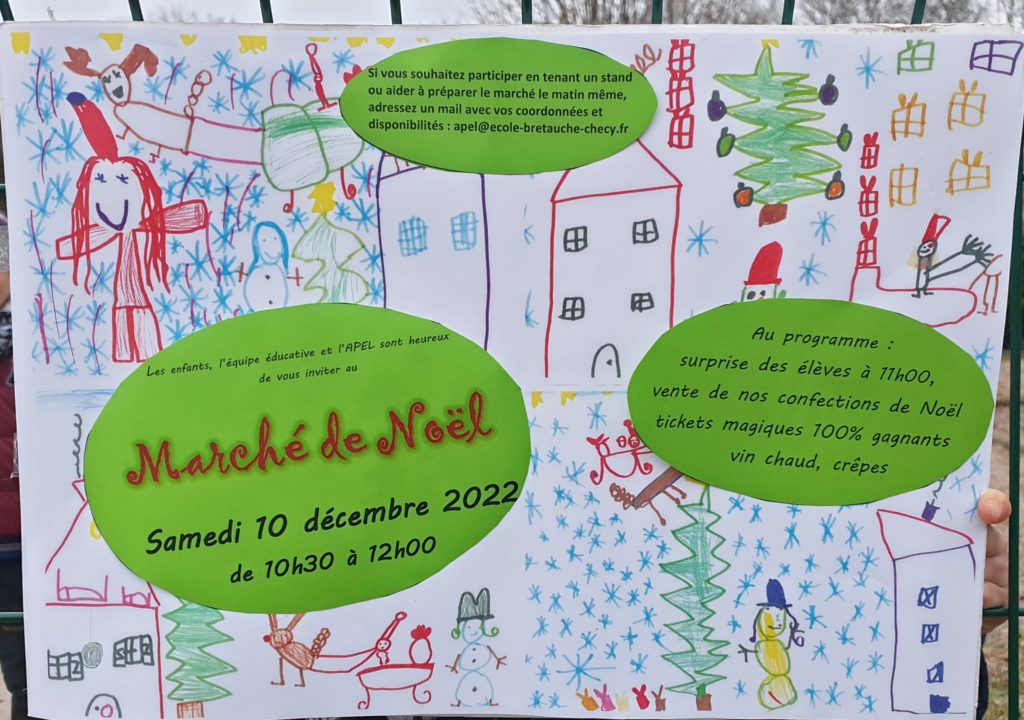 Si vous souhaitez participer en tenant un stand
ou aider à préparer le marché le matin même,
adressez un mail avec vos coordonnées et
disponibilités : apel@ecole-bretauche-checy.fr
Les enfants, l'équipe éducative et l'APEL sont heureux
de vous inviter au
Marché de Noël
Samedi 10 décembre 2022
de 10h30 à 12h00
Au programme :
surprise des élèves à 11h00,
vente de nos confections de Noël
tickets magiques 100% gagnants
vin chaud, crêpes